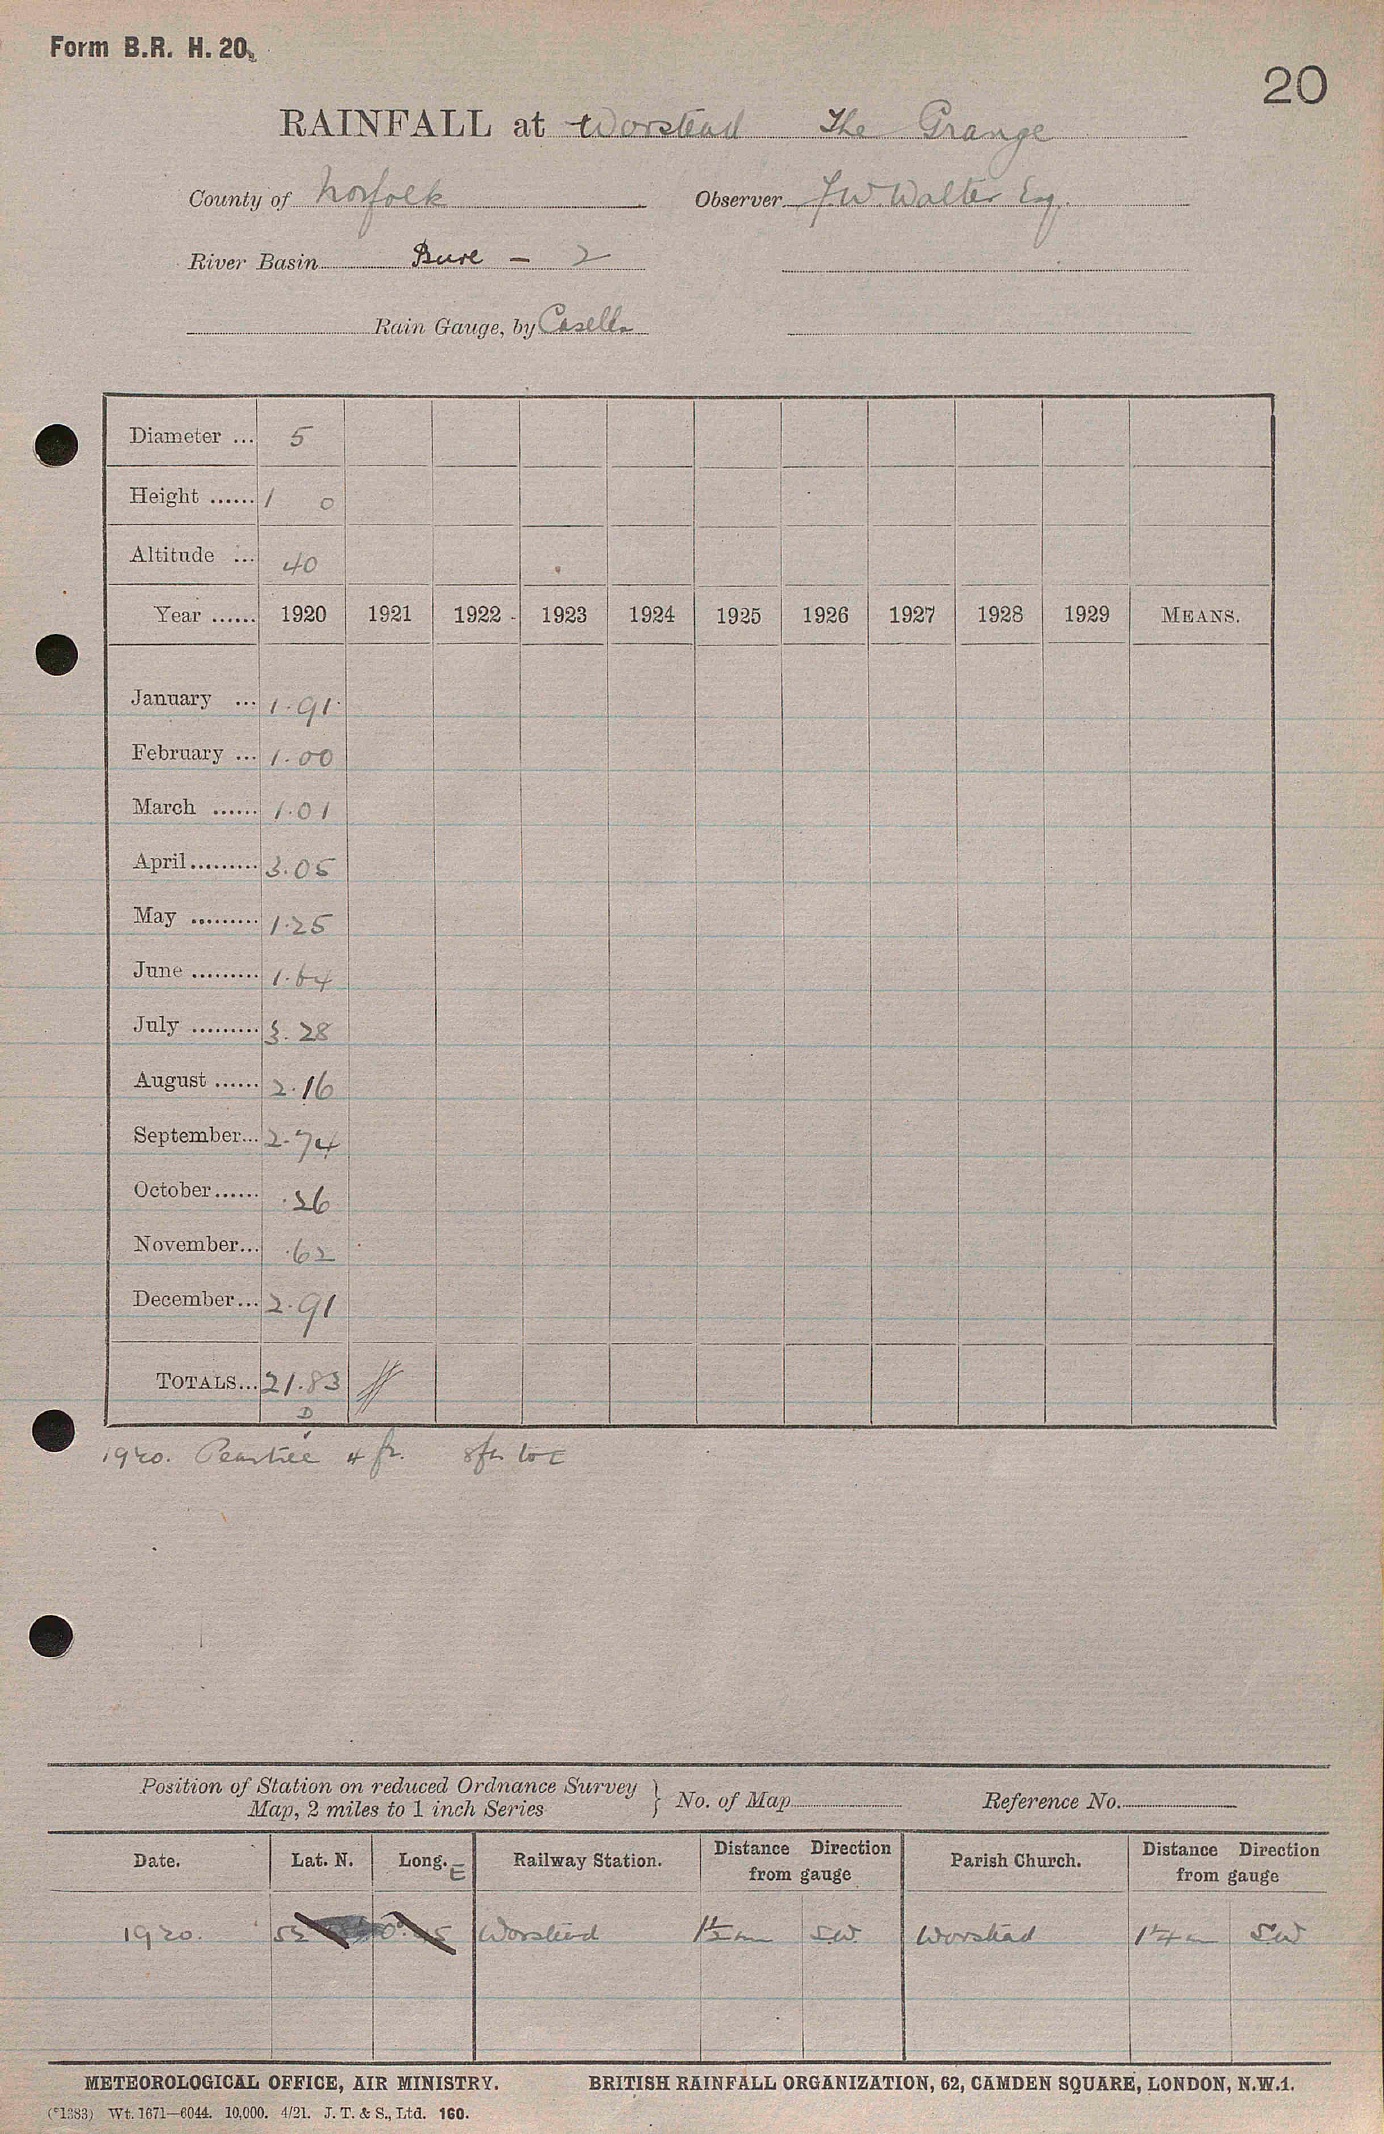 Form B.R. H. 20.
20
RAINFALL at Worstead The Grange
County of Norfolk Observer J W Walter Esq.
River Basin Bure - 2
Rain Gauge, by Casella
Diameter ... 5
Height ...... 1 0
Altitude ... 40
Year ...... 1920 1921 1922 1923 1924 1925 1926 1927 1928 1929 MEANS.
January ... 1.91
February ... 1.00
March ...... 1.01
April ......... 3.05
May ......... 1.25
June ......... 1.64
July ......... 3.28
August ...... 2.16
September ... 2.74
October ...... .26
November ... .62
December ... 2.91
TOTALS ... 21.83
D
1920. Peartree 4 ft. 8ft to E
Position of Station on reduced Ordnance Survey
Map, 2 miles to 1 inch Series } No. of Map Reference No.
Date. Lat. N. Long. E Railway Station. Distance Direction from gauge Parish Church. Distance Direction from gauge
1920. 52 Worstead 1½ m SW Worstead 1¼ m SW
METEOROLOGICAL OFFICE, AIR MINISTRY. BRITISH RAINFALL ORGANIZATION, 62, CAMDEN SQUARE, LONDON, N.W.1.
(*1383) Wt. 1671—6044. 10,000. 4/21. J. T. & S., Ltd. 160.